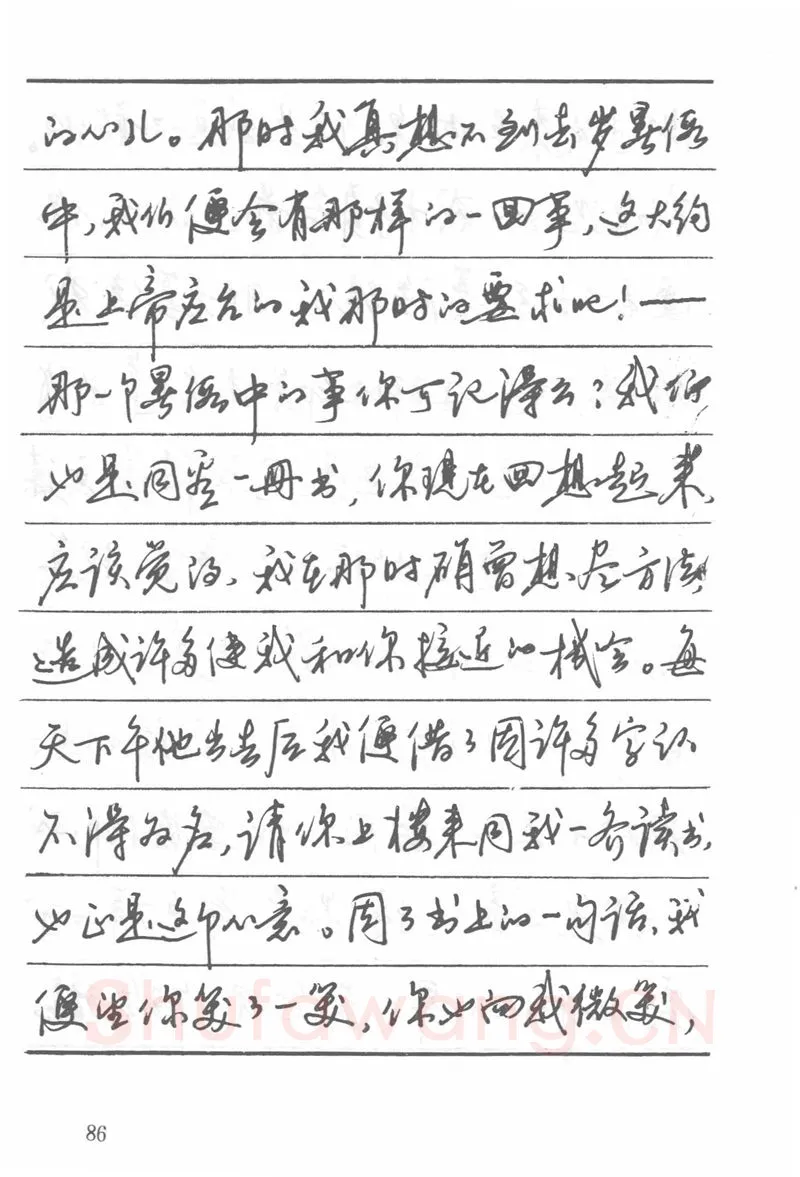 的心儿。那时我真想不到去岁暑假
中,我们便会有那样的一回事,这大约
是上帝应允的我那时的要求吧!——
那一个暑假中的事你可记得么?我们
也是同看一册书,你现在回想起来,
应该觉得,我在那时确曾想尽方法,
造成许多使我和你接近的机会。每
天下午他出去后我便借了因许多字认
不得为名,请你上楼来同我一齐读书,
也正是这个心意。因了书上的一句话,我
便望你笑了一笑,你也向我微笑,
Shufawang.CN
86